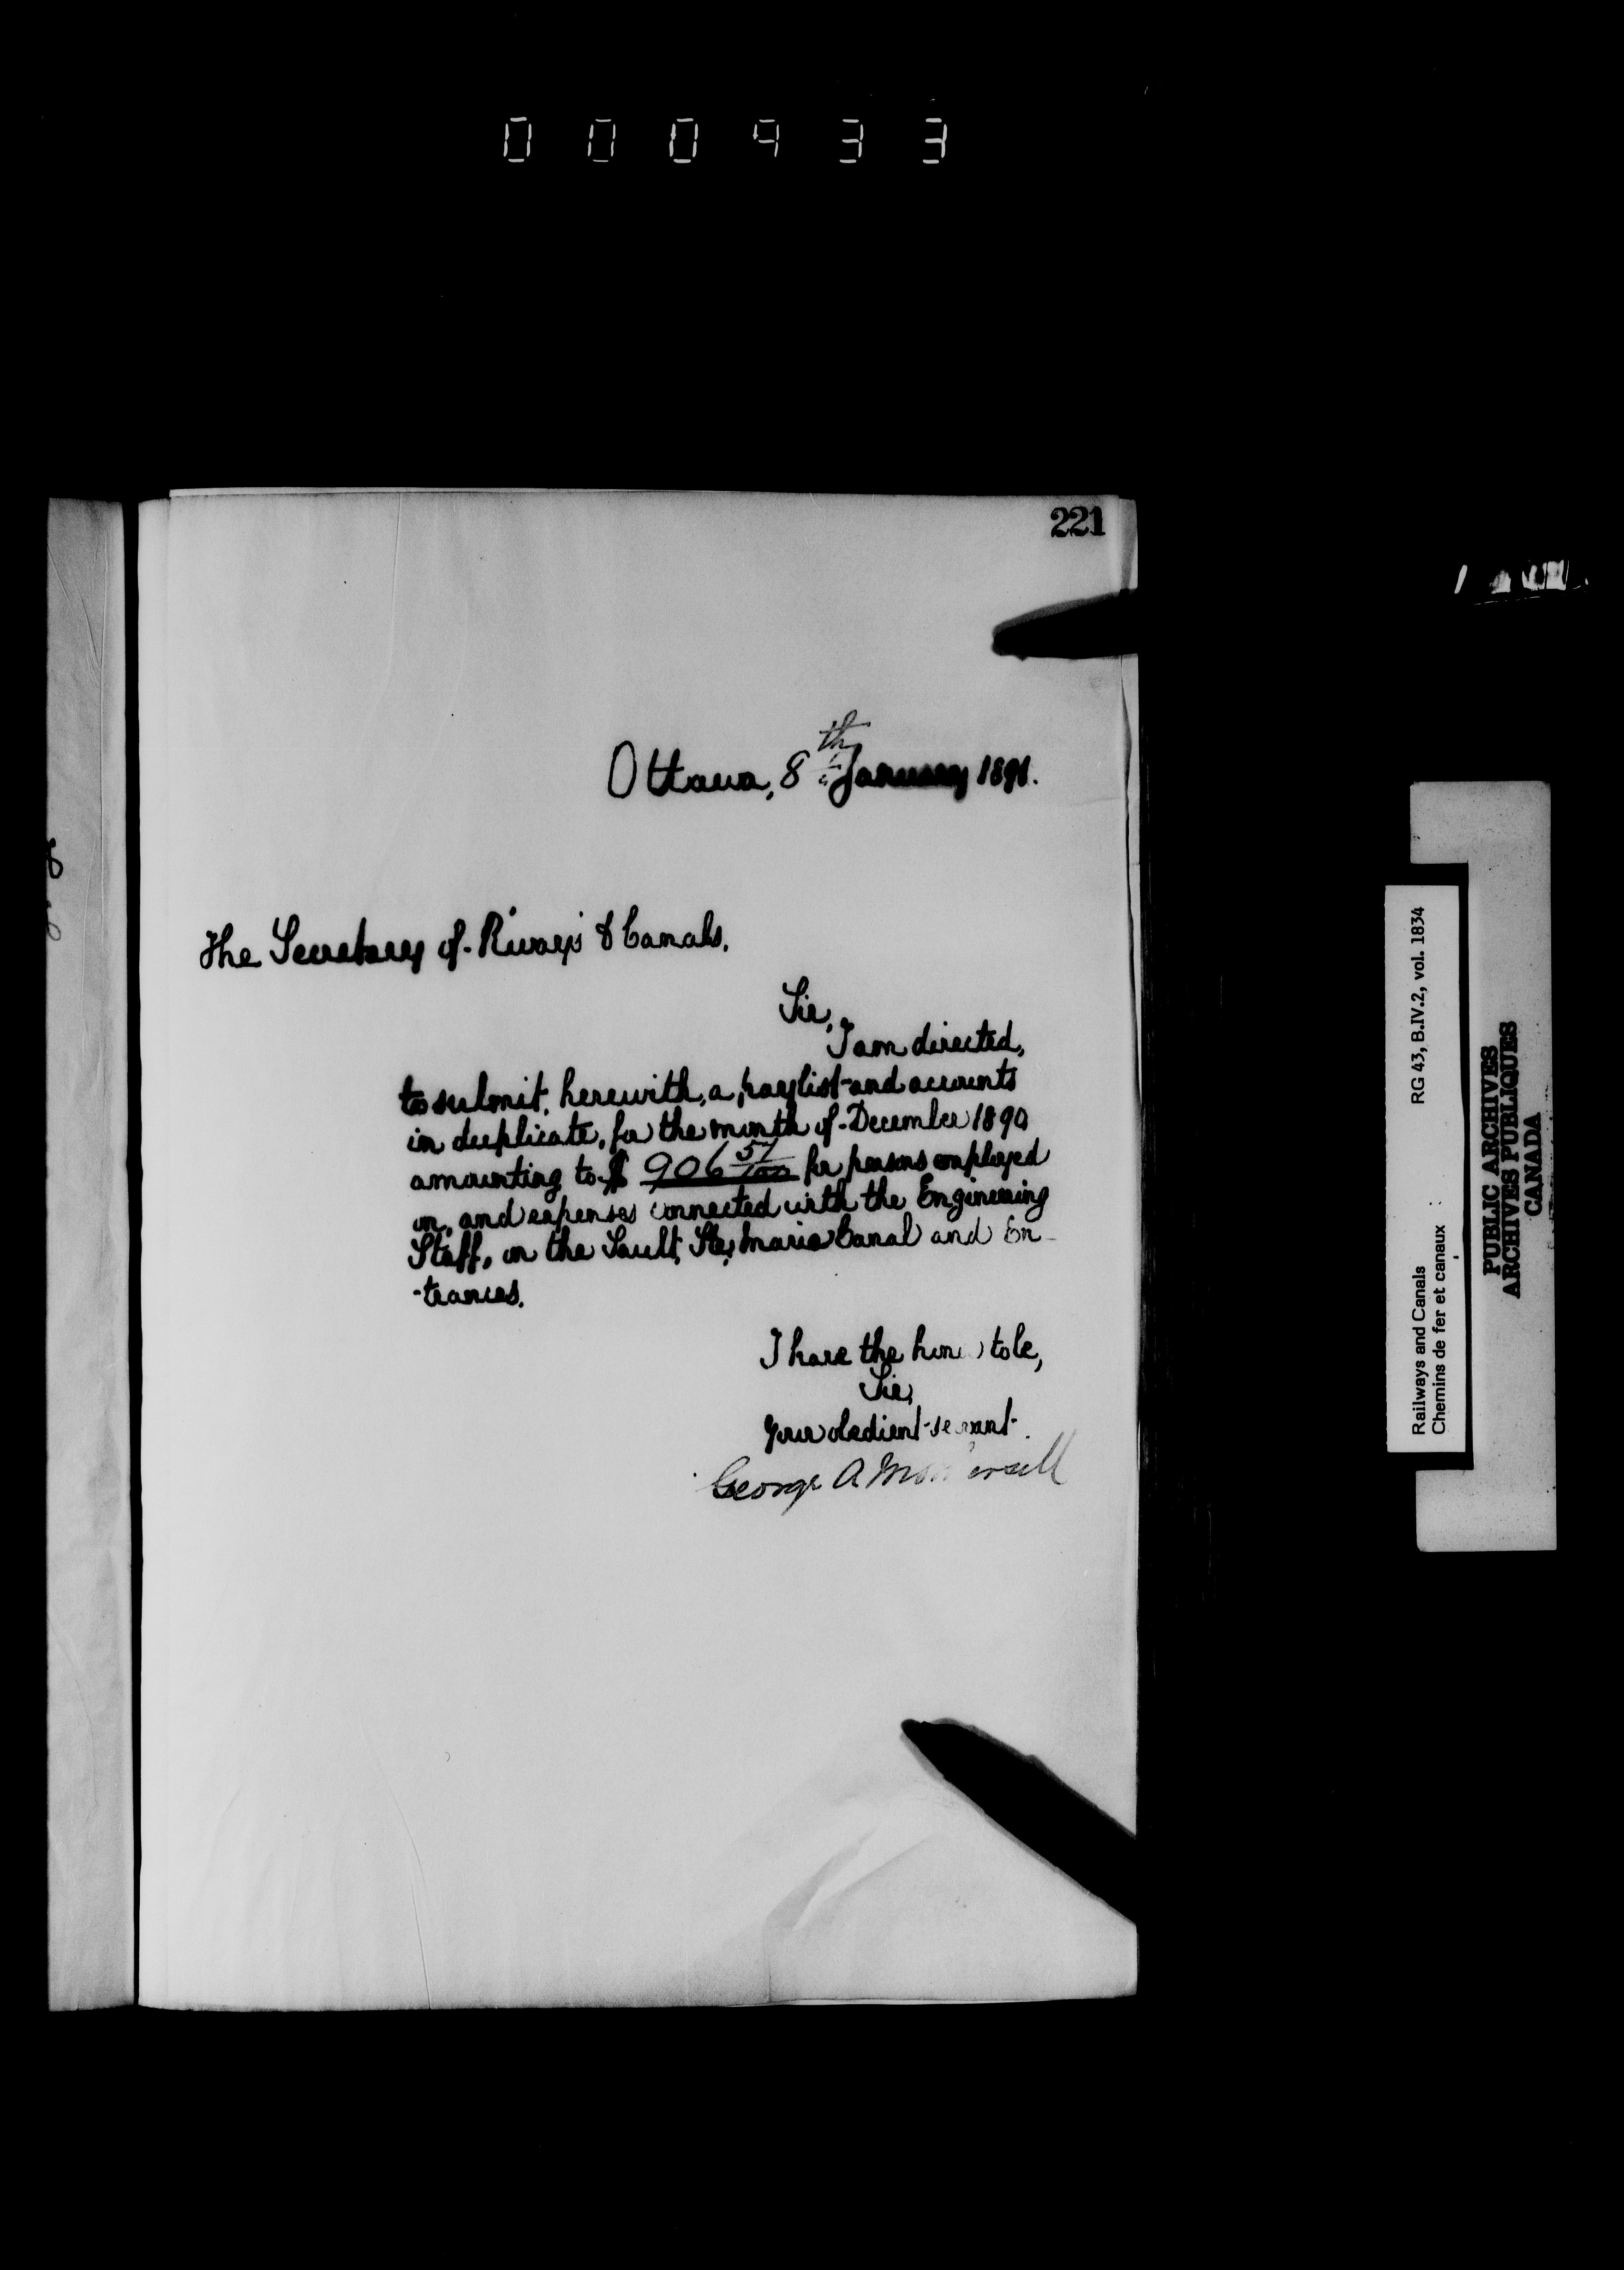 000933
221
Ottawa, 8th January 1891.
The Secretary of Rways & Canals.
Sir,
I am directed,
to submit, herewith, a paylist and accounts
in duplicate, for the month of December 1890
amounting to $ 906 57/100 for persons employed
on, and expenses connected with the Engineering
Staff, on the Sault, Ste, Marie Canal and En-
-trances.
I have the hon to be,
Sir,
Your obedient servant.
George A
RG 43, B.IV.2, vol. 1834
Railways and Canals
Chemins de fer et canaux
PUBLIC ARCHIVES
ARCHIVES PUBLIQUES
CANADA